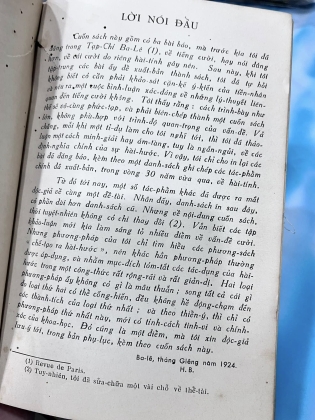 LỜI NÓI ĐẦU
Cuốn sách này gồm có ba bài báo, mà trước kia tôi đã
đăng trong Tạp-Chí Ba-Lê (1), về tiếng cười, hay nói đúng
hơn, về cái cười do riêng hài-tính gây nên. Sau này, khi tôi
tập-trung các bài ấy để xuất-bản thành sách, tôi đã tự hỏi
không biết có cần phải khảo-sát cặn-kẽ ý-kiến của tiền-nhân
và mở ra một cuộc bình-luận xác-đáng về những lý-thuyết liên-
quan đến tiếng cười không. Tôi thấy rằng: cách trình-bày như
thế sẽ vô-cùng phức-tạp, và phải biên-chép thành một cuốn sách
lớn, không phù-hợp với trình-độ quan-trọng của vấn-đề. Vả
chăng, mãi khi một tỉ-dụ làm cho tôi nghĩ tới, thì tôi đã thảo-
luận một cách minh-giải hay ám-tàng, tuy là ngắn-ngủi, về các
định-nghĩa chính của sự hài-hước. Vì vậy, tôi chỉ cho in lại các
bài đã đăng báo, kèm theo một danh-sách ghi chép các tác-phẩm
chính đã xuất-bản, trong vòng 30 năm vừa qua, về hài-tính.
Từ đó tới nay, một số tác-phẩm khác đã được ra mắt
độc-giả về cùng một đề-tài. Nhân đấy, danh-sách in sau đây,
có phần dài hơn danh-sách cũ. Nhưng về nội-dung cuốn sách,
thì tuyệt-nhiên không có chi thay đổi (2). Vẫn biết các tập
khảo-luận mới kia làm sáng tỏ nhiều điểm về vấn-đề cười.
Nhưng phương-pháp của tôi chỉ tìm hiểu các phương-sách
« chế-tạo ra hài-hước », nên khác hẳn phương-pháp thường
được áp-dụng, và nhằm mục-đích tóm-tắt các tác-dụng của hài-
hước trong một công-thức rất rộng-rãi và rất giản-dị. Hai loại
phương-pháp ấy không có gì là mâu thuẫn; song tất cả cái gì
do loại thứ hai có thể cống-hiến, đều không hề động-chạm đến
các thành-tích của loại thứ nhất; và theo thiển-ý, thì chỉ có
phương-pháp thứ nhất này, mới có tính-cách tinh-vi và chính-
xác của khoa-học. Đó cũng là một điểm, mà tôi xin độc-giả
lưu ý tới, trong bản phụ-lục, kèm theo cuốn sách này.
Ba-lê, tháng Giêng năm 1924.
H.B.
(1) Revue de Paris.
(2) Tuy-nhiên, tôi đã sửa-chữa một vài chỗ về thể-tài.